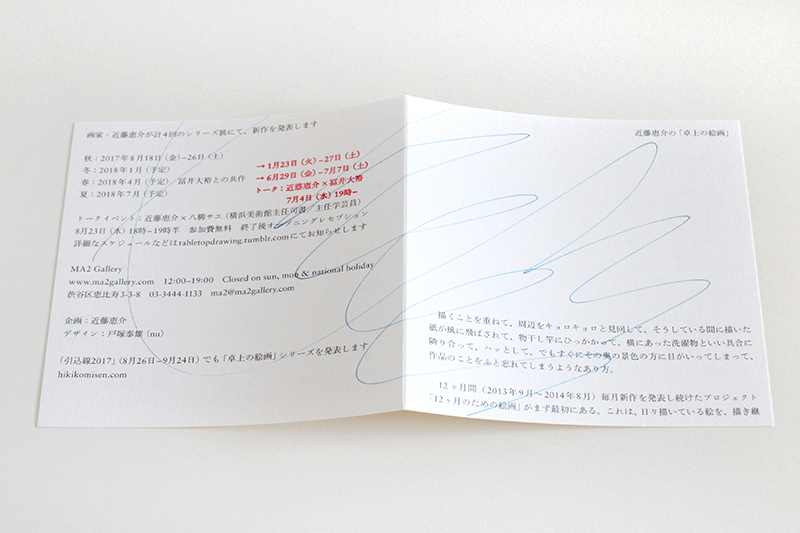 画家・近藤恵介が計4回のシリーズ展にて、新作を発表します
秋：2017年8月18日（金）–26日（土）
冬：2018年1月（予定） →1月23日（火）–27日（土）
春：2018年4月（予定） 冨井大裕との共作 →6月29日（金）–7月7日（土）
夏：2018年7月（予定） トーク：近藤恵介×冨井大裕
7月4日（水）19時–
トークイベント：近藤恵介×八柳サエ（横浜美術館主任司書／主任学芸員）
8月23日（水）18時–19時半 参加費無料 終了後オープニングレセプション
詳細なスケジュールなどはtabletopdrawing.tumblr.comにてお知らせします
MA2 Gallery
www.ma2gallery.com 12:00–19:00 Closed on sun, mon & national holiday
渋谷区恵比寿3-3-8 03-3444-1133 ma2@ma2gallery.com
企画：近藤恵介
デザイン：戸塚泰雄（nu）
「引込線2017」（8月26日–9月24日）でも「卓上の絵画」シリーズを発表します
hikikomisen.com
近藤恵介の「卓上の絵画」
描くことを重ねて、周辺をキョロキョロと見回して、そうしている間に描いた
紙が風に飛ばされて、物干し竿にひっかかって、横にあった洗濯物といい具合に
隣り合って、ハッとして、でもすぐにその奥の景色の方に目がいってしまって、
作品のことをふと忘れてしまうようなあり方。
12ヶ月間（2013年9月～2014年8月）毎月新作を発表し続けたプロジェクト
「12ヶ月のための絵画」がまず最初にある。これは、日々描いている絵を、描き継